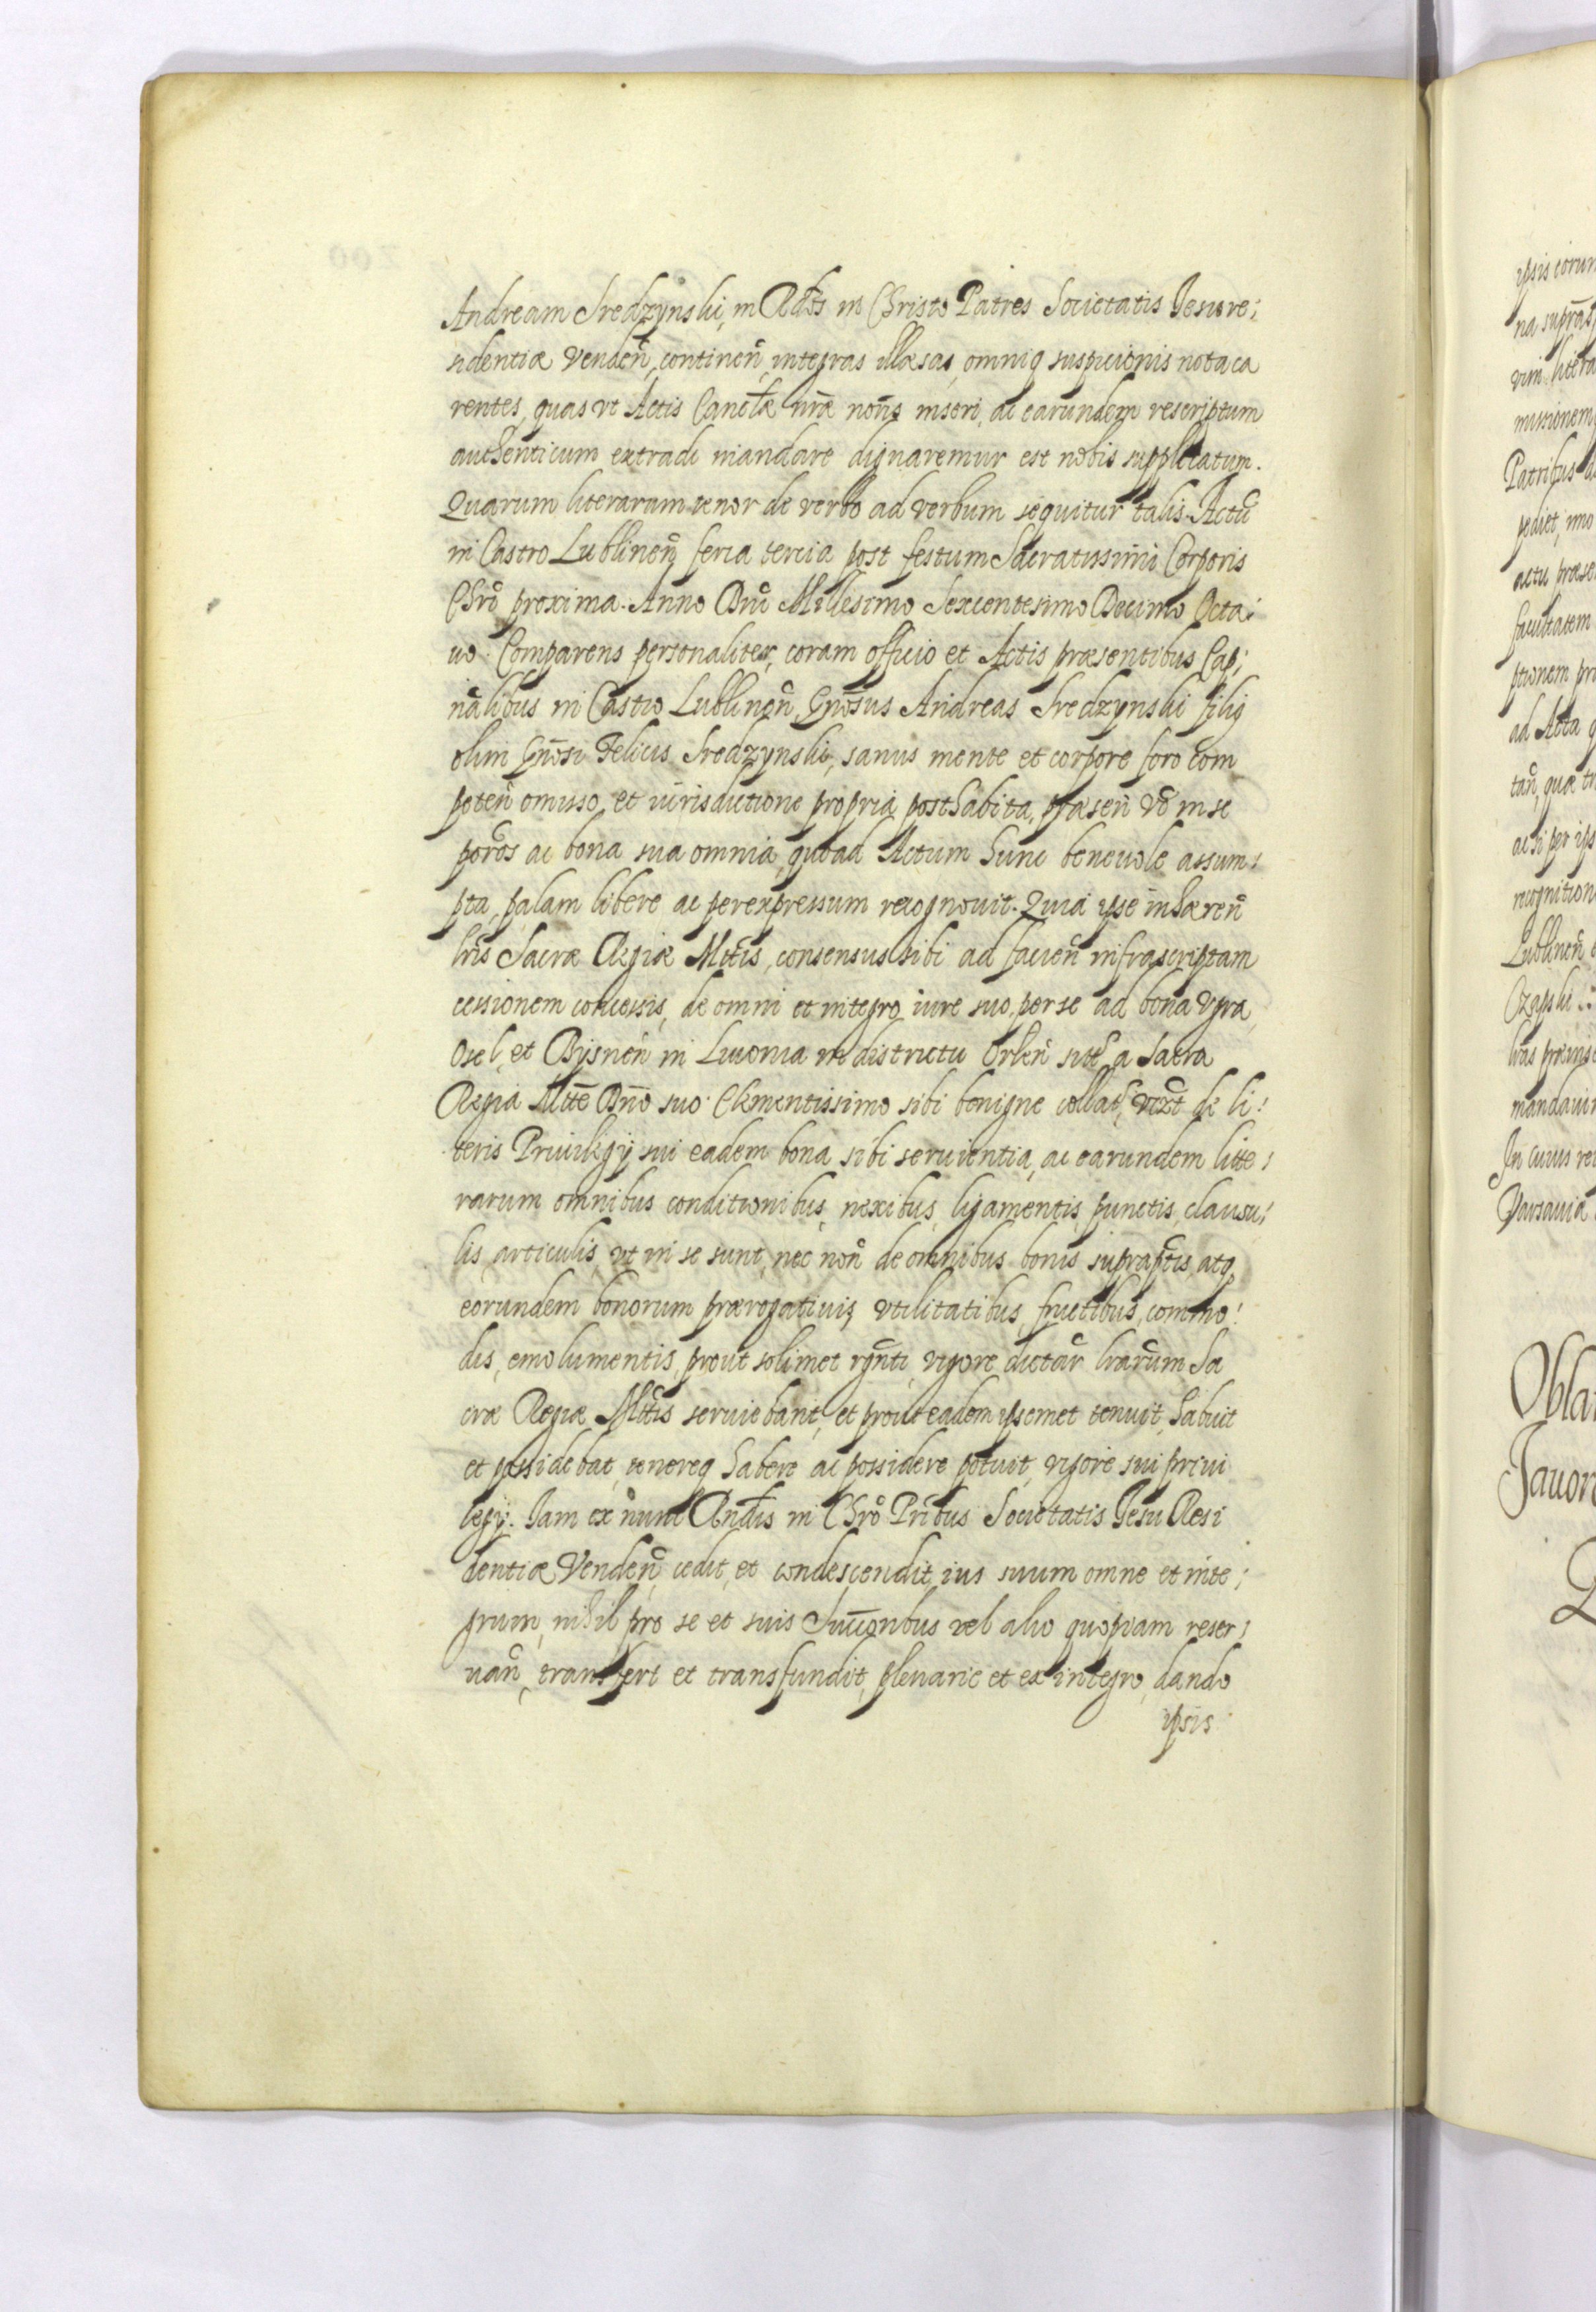 Andream Sredzynski, in Rd̃os in Christo Patres Societatis Iesu re;
sidentiæ Venden̄, continen̄, integras illæsas, omniq suspicionis nota ca
rentes, quas vt Actis Canc̃læ nr̃æ non̄ş inseri, ac earundem rescriptum
authenticum extradi mandare dignaremur est nobis supplicatum.
Quarum literarum tenor de verbo ad verbum sequitur talis. Actũ
in Castro Lublinen̄ş feria tercia post festum Sacratissimi Corporis
Chrĩ proxima. Anno Dnĩ Millesimo Sexcentesimo Decimo Octa;
uo. Comparens personaliter, coram officio et Actis præsentibus Cap;
nãlibus in Castro Lublinen̄, Gnõsus Andreas Sredzynski filiq
olim Gnõsi Felicis Sredzynski, sanus mente et corpore foro com
peten̄ omisso, et iurisdictione propria posthabita, præsen̄ võ in se
porõs ac bona sua omnia, quoad Actum hunc beneuole assum;
pta, palam libere ac per expressum recognouit. Quia ipse inhæren̄
lrĩs Sacræ Regiæ Mtĩs, consensus sibi ad facien̄ infrascriptam
cessionem concessis, de omni et integro iure suo, per se ad bona
Osel, et Bysnen̄ in Liuonia in districtu Orlen̄ sitĕ a Sacra
Regia Mtẽ Dnõ suo Clementissimo sibi benigne collat, vizt̃ de li;
teris Priuilegÿ sui eadem bona sibi seruientia, ac earundem litte;
rarum omnibus conditionibus, nexibus, ligamentis, punctis, clausu;
lis, articulis, vt in se sunt, nec non̄ de omnibus bonis suprap̃tis, atq
eorundem bonorum prærogatiuis, vtilitatibus, fructibus, commo;
dis, emolumentis, prout solimet rgñti, vigore dictar̃ lrarũm Sa
cræ Regiæ Mtĩs seruiebant, et prout eadem ipsemet tenuit, habuit
et possidebat, tenereq habere ac possidere potuit, vigore sui priui
legÿ. Iam ex nunc Rndĩs in Chrõ Prĩbus Societatis Iesu Resi
dentiæ Venden̄, cedit, et condescendit, ius suum omne et inte;
grum, nihil pro se et suis Suc̃coribus vel alio quopiam reser;
uan̄, transfert et transfundit, plenarie et ex integro, dando
ipsis